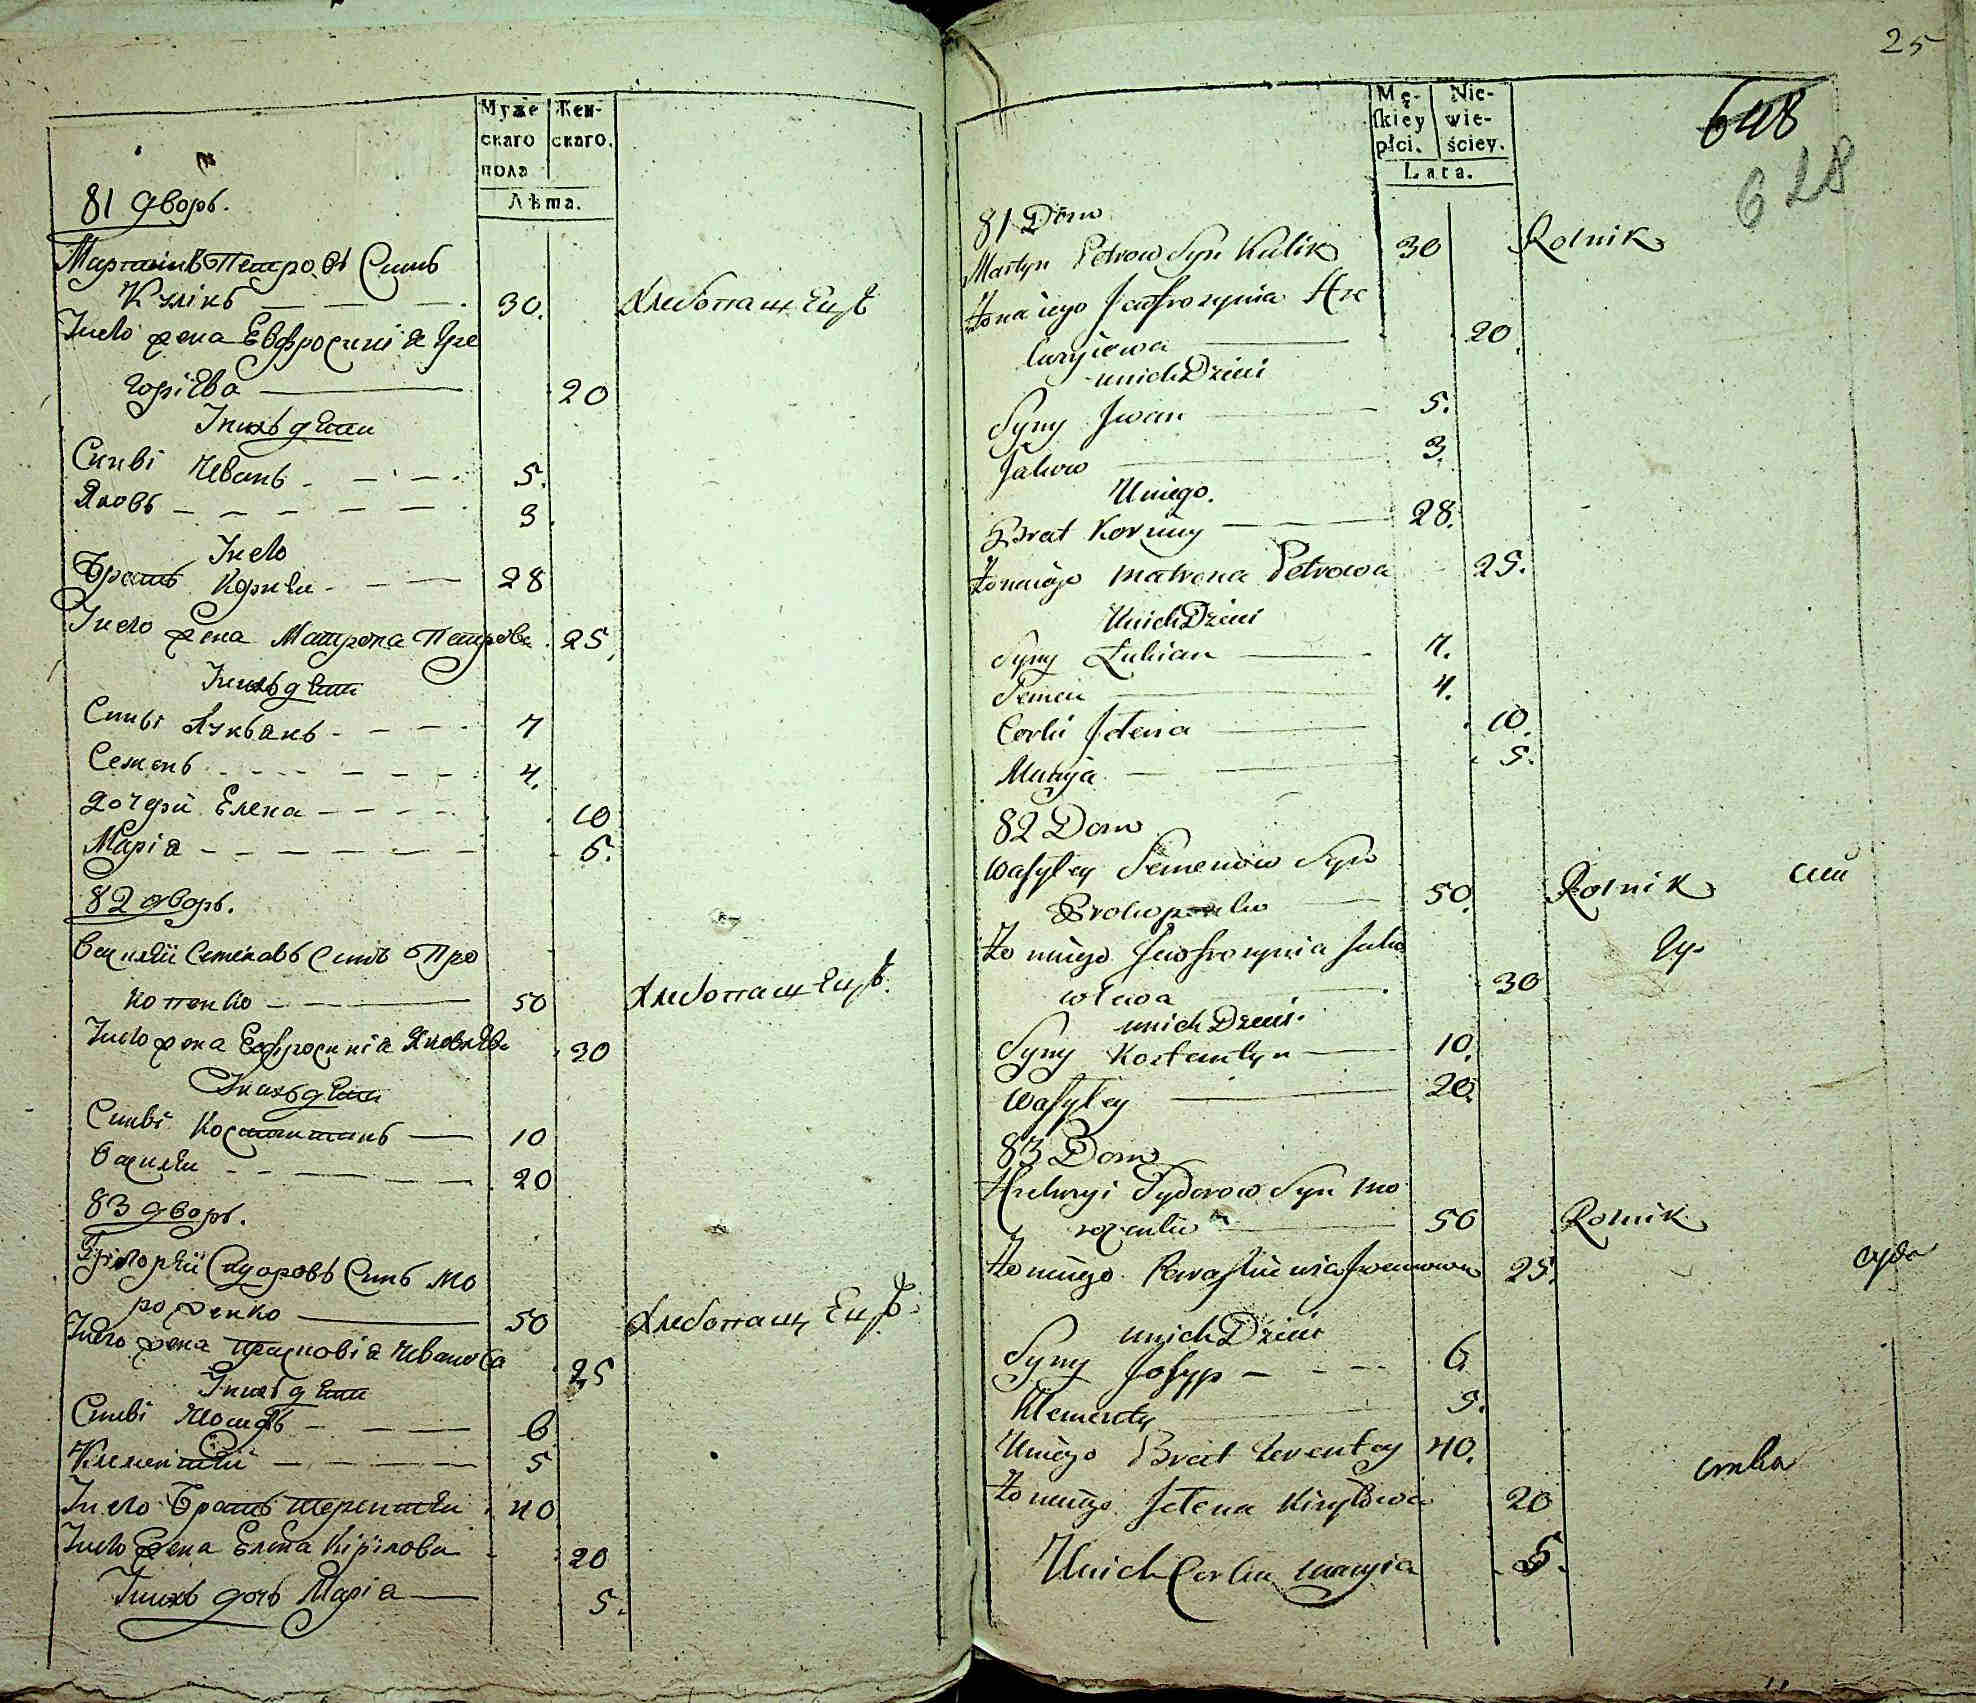 Муже
скаго
пола
Жен-
скаго.
Лѣта.
81 дворъ.
Мартинъ Петровъ Синъ
Куликъ 30. Хлебопащецъ
У него жена Евфросиніа Гре
горіева 20
У нихъ дети
Синві Иванъ 5.
Яковъ 3.
У него
Братъ Корней 28
У него жена Матрона Петрова 25
У нихъ дети
Синві Лукъянъ 7
Семенъ 4.
Дочери Елена 10
Маріа 5.
82 дворъ.
Василій Семеновъ Синъ Про
копенко 50 Хлебопащецъ.
У него жена Евфросиніа Яковлева 30
У нихъ дети
Синві Костантинъ 10
Василей 20
83 дворъ.
Григорій Сидоровъ Синъ Мо
розенко 50 Хлебопащецъ.
У него жена Прасковіа Иванова 25
У нихъ дети
Синві Иосипъ 6
Климентій 5
У него Братъ Терентей 40
У него жена Елена Кірілова 20
У нихъ дочь Маріа 5.
25
Mę-
skiey
płci.
Nie-
wie-
ściey.
Lata.
648
628
81 Dom
Martyn Petrow Syn Kulik 30 Rolnik
Żona iego Jewfrozynia Hre
horyiewa 20
u nich Dzieci
Syny Jwan 5.
Jakow 3.
U niego.
Brat Korniey 28.
Żona iego Matrona Petrowa 25.
U nich Dzieci
Syny Łukian 7.
Semen 4.
Corki Jelena 10.
Maryja 5.
82 Dom
Wasyley Semenow Syn
Prokopenko 50. Rolnik
Żona iego Jewfrozynia Jako
wlewa 30
u nich Dzieci.
Syny Kostantyn 10.
Wasyley 20.
83 Dom
Hrehoryi Sydorow Syn Mo
rozenko 50 Rolnik
Żona iego Paraskiewia Jwanowna 25.
u nich Dzieci
Syny Josyp 6
Klementy 5.
U niego Brat Terentey 40.
Żona iego Jelena Kiryłowa 20
U nich Corka Maryia 5.